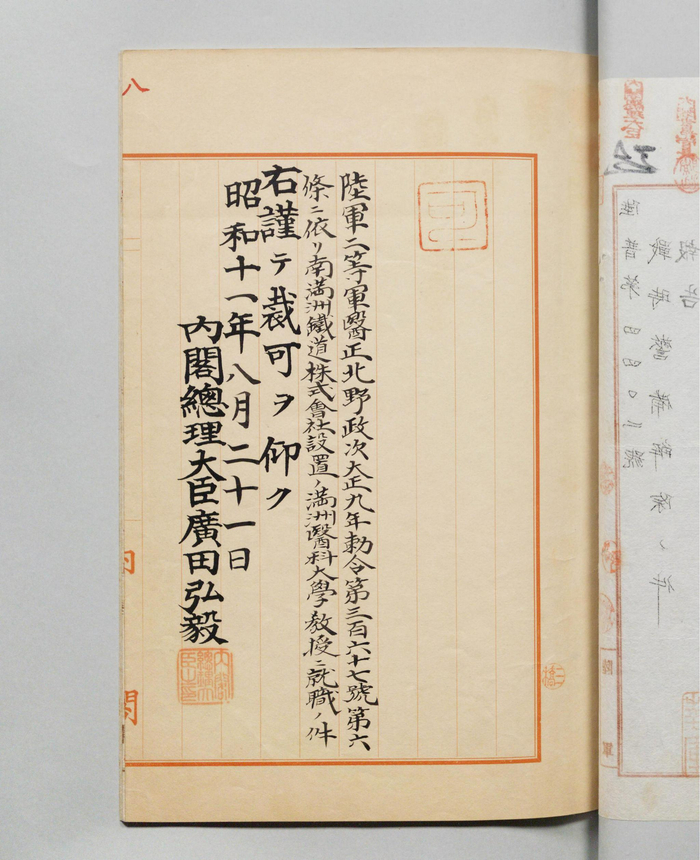 陸軍二等軍醫正北野政次大正九年勅令第三百六十七號第六
條ニ依リ南満洲鐵道株式會社設置ノ満洲醫科大學教授ニ就職ノ件
右謹テ裁可ヲ仰ク
昭和十一年八月二十一日
内閣總理大臣廣田弘毅
八
内
閣